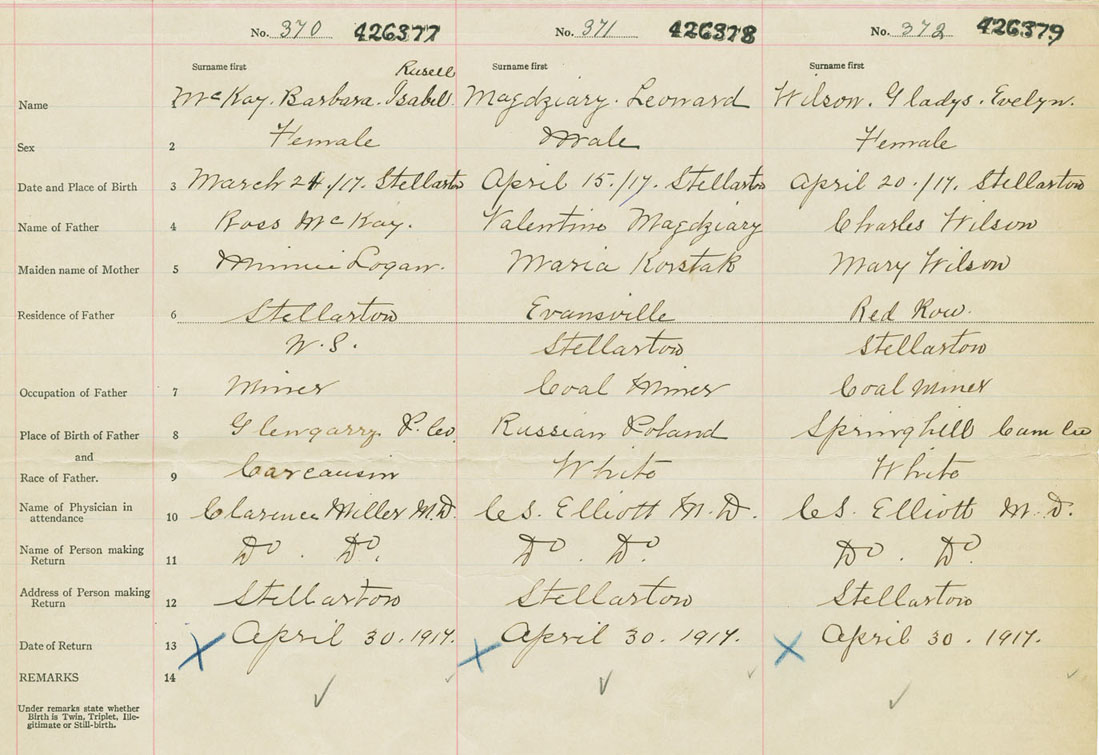 No. 370 426377 No. 371 426378 No. 372 426379
Surname first Surname first Surname first
Rusell
Name 1 McKay. Barbara. Isabell. Magdziary. Leonard Wilson. Gladys. Evelyn.
Sex 2 Female Male Female
Date and Place of Birth 3 March 24./17. Stellarton April 15./17. Stellarton April 20./17. Stellarton
Name of Father 4 Ross McKay. Valentino Magdziary Charles Wilson
Maiden name of Mother 5 Minnie Logan. Maria Korstak Mary Wilson
Residence of Father 6 Stellarton Evansville Red Row.
N.S. Stellarton Stellarton
Occupation of Father 7 Miner Coal Miner Coal Miner
Place of Birth of Father 8 Glengarry P. Co. Russian Poland Springhill Cum Co
and
Race of Father. 9 Carcausin White White
Name of Physician in
attendance 10 Clarence Miller M.D. C.S. Elliott M.D. C.S. Elliott M.D.
Name of Person making
Return 11 Do. Do. Do. Do. Do. Do.
Address of Person making
Return 12 Stellarton Stellarton Stellarton
Date of Return 13 April 30. 1917. April 30. 1917. April 30. 1917.
REMARKS 14
Under remarks state whether
Birth is Twin, Triplet, Ille-
gitimate or Still-birth.